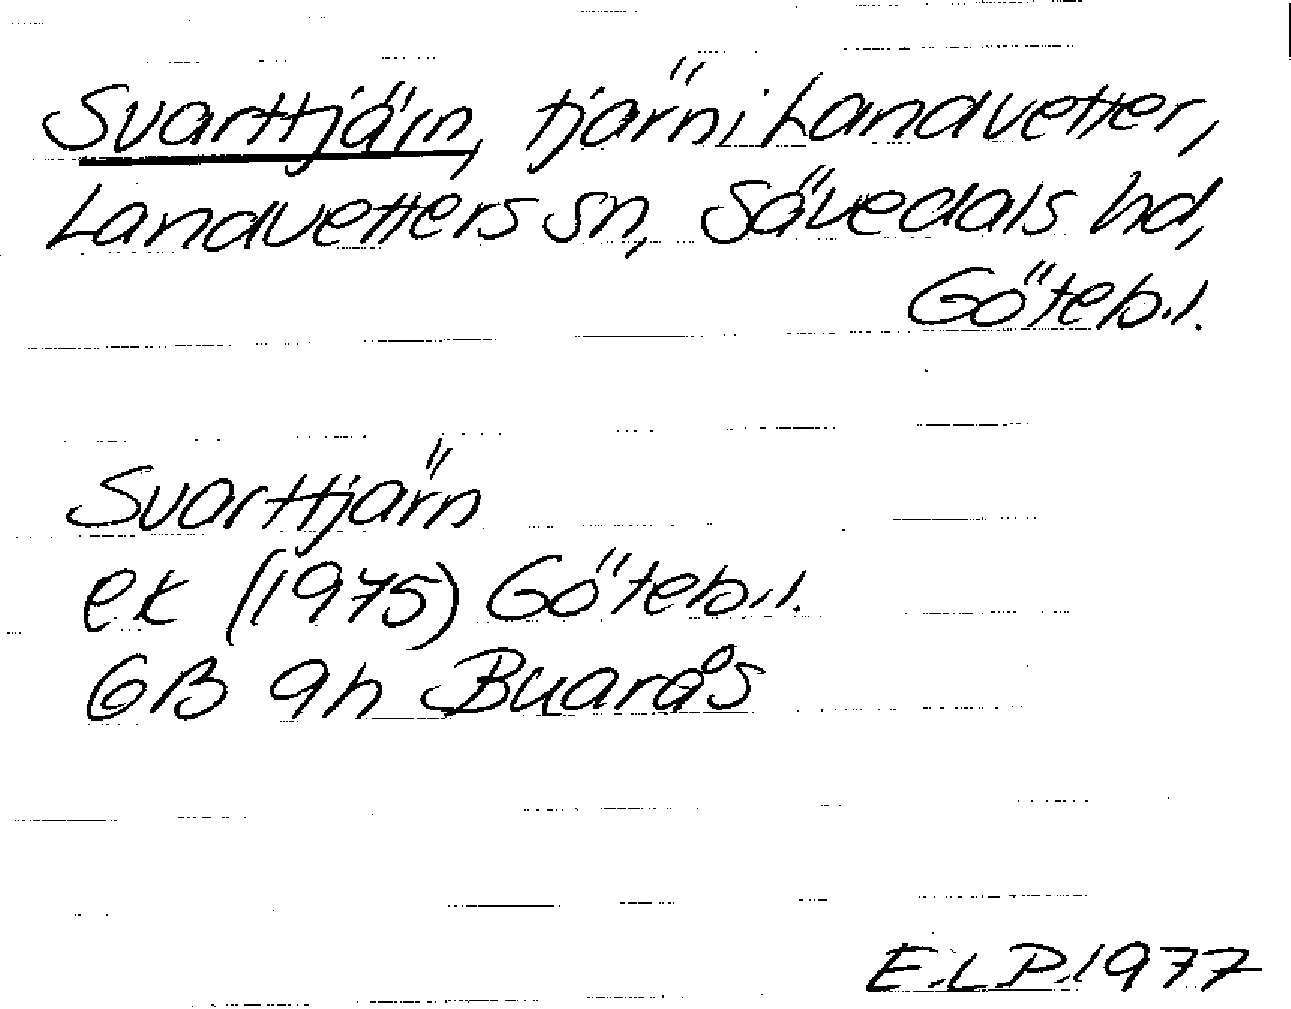 Svarttjärn, tjärn i Landvetter,
Landvetters sn, Sävedals hd,
Göteb.l.
Svarttjärn
ek (1975) Göteb.l.
GB 9h Buarås
E.L.P. 1977